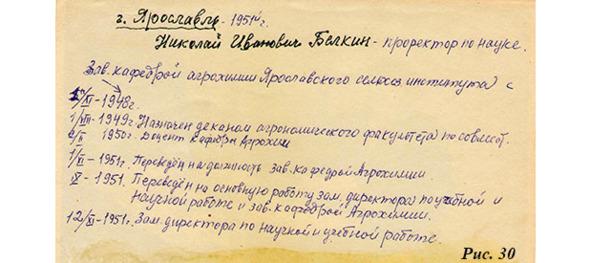 г. Ярославль - 1951 г.
Николай Иванович Белкин - проректор по науке.
Зав. кафедрой агрохимии Ярославского сельхоз. института с
/XI - 1948 г.
1/VIII - 1949 г. Назначен деканом агрономического факультета по совмест.
6/II 1950 г. Доцент кафедры Агрохимии
1/VI - 1951 г. Переведён на должность зав. кафедрой Агрохимии.
V - 1951. Переведён на основную работу зам. директора по учебной и
научной работе и зав. кафедрой Агрохимии.
12/XI - 1951 г. Зам. директора по научной и учебной работе.
Рис. 30